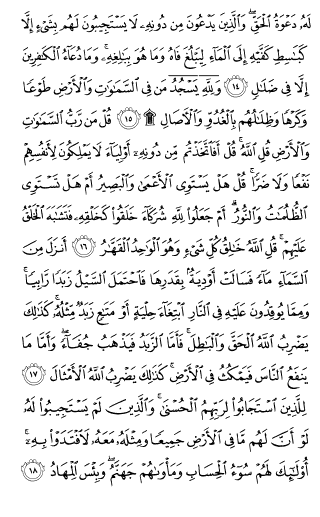 لَهُۥ دَعْوَةُ ٱلْحَقِّ ۖ وَٱلَّذِينَ يَدْعُونَ مِن دُونِهِۦ لَا يَسْتَجِيبُونَ لَهُم بِشَىْءٍ إِلَّا
كَبَـٰسِطِ كَفَّيْهِ إِلَى ٱلْمَآءِ لِيَبْلُغَ فَاهُ وَمَا هُوَ بِبَـٰلِغِهِۦ ۚ وَمَا دُعَآءُ ٱلْكَـٰفِرِينَ
إِلَّا فِى ضَلَـٰلٍ ١٤ وَلِلَّهِ يَسْجُدُ مَن فِى ٱلسَّمَـٰوَٰتِ وَٱلْأَرْضِ طَوْعًا
وَكَرْهًا وَظِلَـٰلُهُم بِٱلْغُدُوِّ وَٱلْـَٔاصَالِ ۩ ١٥ قُلْ مَن رَّبُّ ٱلسَّمَـٰوَٰتِ
وَٱلْأَرْضِ قُلِ ٱللَّهُ ۚ قُلْ أَفَٱتَّخَذْتُم مِّن دُونِهِۦٓ أَوْلِيَآءَ لَا يَمْلِكُونَ لِأَنفُسِهِمْ
نَفْعًا وَلَا ضَرًّا ۚ قُلْ هَلْ يَسْتَوِى ٱلْأَعْمَىٰ وَٱلْبَصِيرُ أَمْ هَلْ تَسْتَوِى
ٱلظُّلُمَـٰتُ وَٱلنُّورُ ۗ أَمْ جَعَلُوا۟ لِلَّهِ شُرَكَآءَ خَلَقُوا۟ كَخَلْقِهِۦ فَتَشَـٰبَهَ ٱلْخَلْقُ
عَلَيْهِمْ ۚ قُلِ ٱللَّهُ خَـٰلِقُ كُلِّ شَىْءٍ وَهُوَ ٱلْوَٰحِدُ ٱلْقَهَّـٰرُ ١٦ أَنزَلَ مِنَ
ٱلسَّمَآءِ مَآءً فَسَالَتْ أَوْدِيَةٌۢ بِقَدَرِهَا فَٱحْتَمَلَ ٱلسَّيْلُ زَبَدًا رَّابِيًا ۚ
وَمِمَّا يُوقِدُونَ عَلَيْهِ فِى ٱلنَّارِ ٱبْتِغَآءَ حِلْيَةٍ أَوْ مَتَـٰعٍ زَبَدٌ مِّثْلُهُۥ ۚ كَذَٰلِكَ
يَضْرِبُ ٱللَّهُ ٱلْحَقَّ وَٱلْبَـٰطِلَ ۚ فَأَمَّا ٱلزَّبَدُ فَيَذْهَبُ جُفَآءً ۖ وَأَمَّا مَا
يَنفَعُ ٱلنَّاسَ فَيَمْكُثُ فِى ٱلْأَرْضِ ۚ كَذَٰلِكَ يَضْرِبُ ٱللَّهُ ٱلْأَمْثَالَ ١٧
لِلَّذِينَ ٱسْتَجَابُوا۟ لِرَبِّهِمُ ٱلْحُسْنَىٰ ۚ وَٱلَّذِينَ لَمْ يَسْتَجِيبُوا۟ لَهُۥ
لَوْ أَنَّ لَهُم مَّا فِى ٱلْأَرْضِ جَمِيعًا وَمِثْلَهُۥ مَعَهُۥ لَٱفْتَدَوْا۟ بِهِۦٓ ۚ
أُو۟لَـٰٓئِكَ لَهُمْ سُوٓءُ ٱلْحِسَابِ وَمَأْوَىٰهُمْ جَهَنَّمُ ۖ وَبِئْسَ ٱلْمِهَادُ ١٨